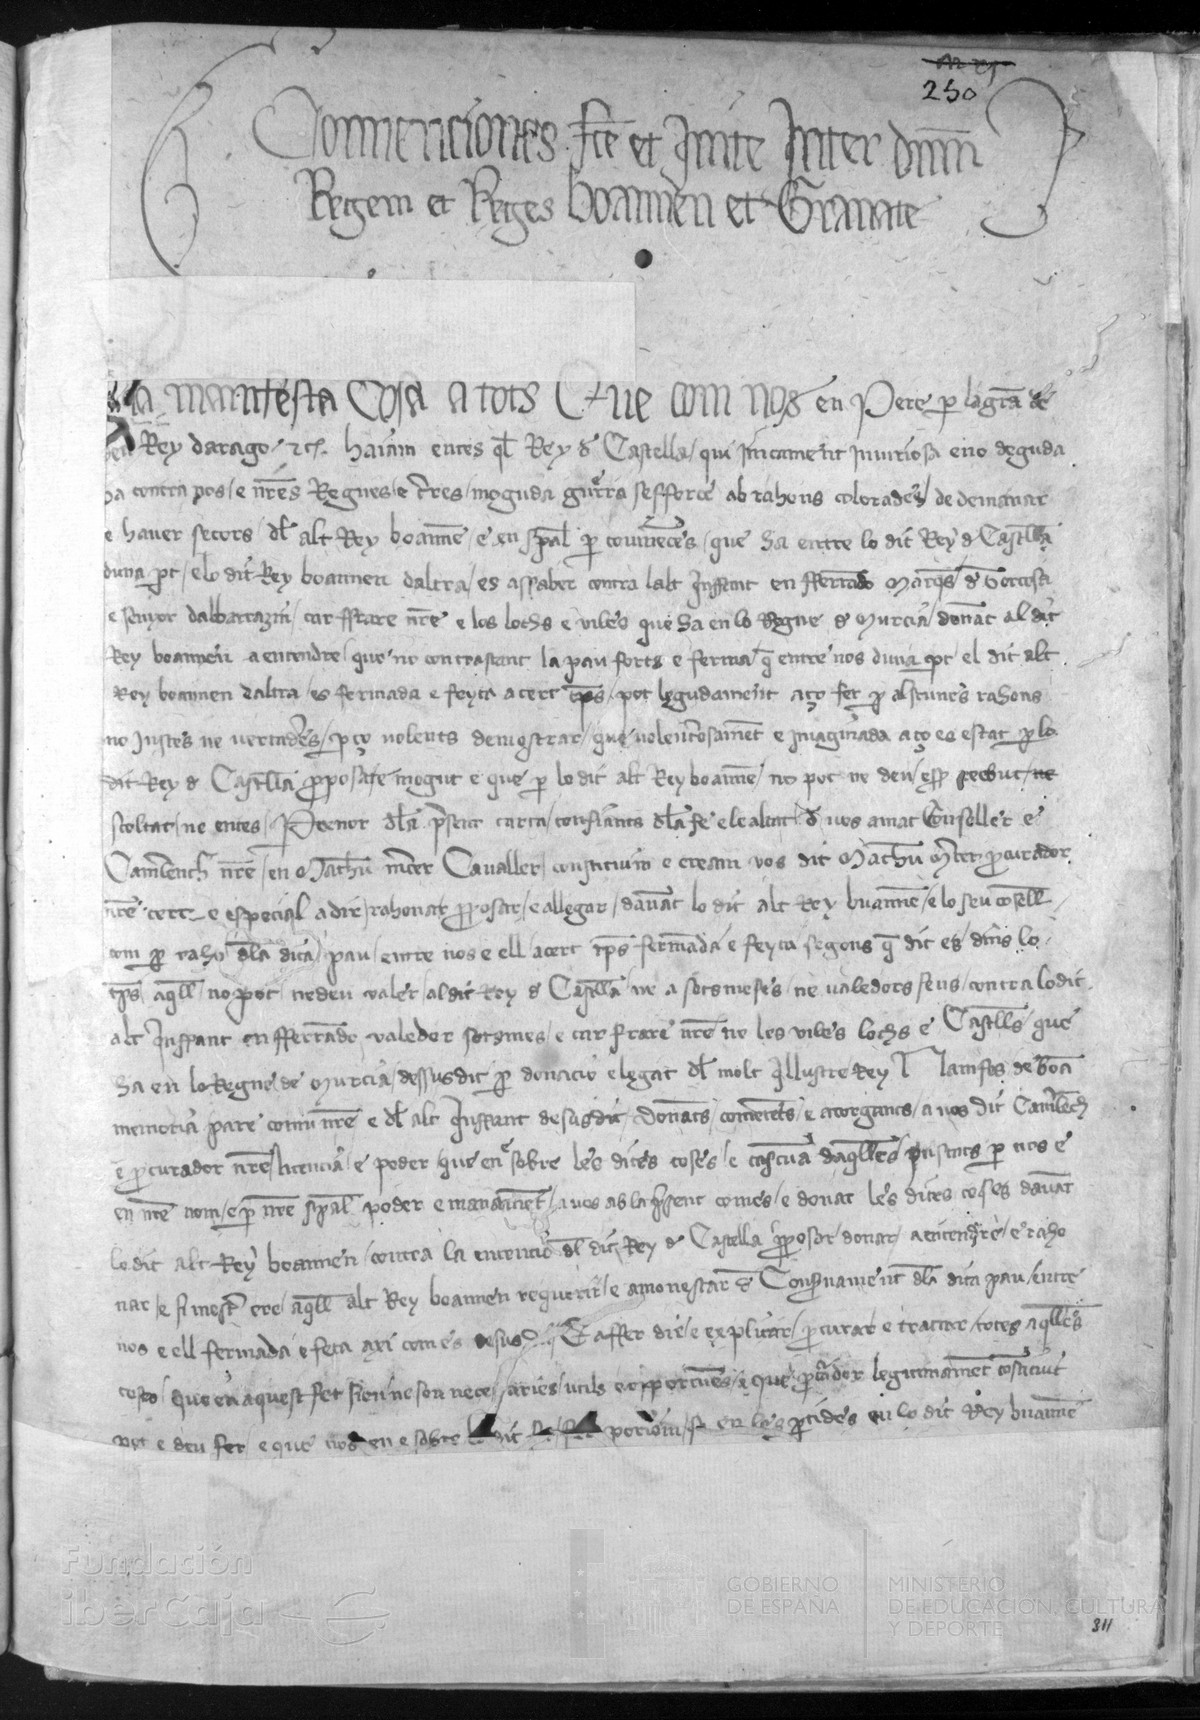 250
Convenciones fcte et Inite Inter dnm
Regem et Reges boamen et Granate
manifesta Cosa a tots Que com nos en Pere p la gra de
Rey darago etc. haiam entes ql Rey d Castella / qui Inicament Iniuriosa e no deguda
ha contra nos / e nres Regnes e terres / moguda guerra sefforce ab rahons colorades / de demanar
e haver secors / dl alt Rey boamen / e en spal p convinences / que ha entre lo dit Rey d Castella
duna pt / e lo dit Rey boamen daltra / es assaber contra lalt Inffant en fferrando Marques d Tortosa
e senyor dalbarrazin / car ffrare nre e los lochs e viles que ha en lo Regne d Murcia / donat al dit
Rey boamen a entendre / que no contrastant la pau forts e ferma q entre nos duna pt / el dit alt
Rey boamen daltra / es fermada e feyta a cert tps / pot legudament aço fer p alscunes rahons
no Justes ne vertaderes / p ço volents demostrar / que volenterosament e Imaginada aço es estat p lo
dit Rey d Castella pposat e mogut e que p lo dit alt Rey boamen / no pot ne deu / esser reebut / ne
scoltat / ne entes / Ab tenor dla psent carta / confiants dla fe e lealtat d vos amat Conseller e
Camlench nre / en Matheu mcer Cavaller / constituim e cream vos dit Matheu Mcer pcurador
nre cert e especial a dir / rahonar pposar / e allegar / davant lo dit alt Rey buamen / e lo seu consell
com p raho dla dita pau / entre nos e ell a cert tps fermada e feyta segons q dit es / dins lo
tps aqll no pot / ne deu valer / al dit Rey d Castella / ne a sotsmeses / ne valedors seus / contra lo dit
alt Inffant en fferrando valedor sotsmes / e car frare nre ne les viles lochs e Castells que
ha en lo Regne de Murcia / dessus dit p donacio e legat dl molt Illustre Rey Namfos de bona
memoria pare comu nre e dl alt Inffant desus dit donants / comenants / e atorgants / a vos dit Camlench
e pcurador nre / licencia / e poder / que en e sobre les dites coses / e cascuna daqlles puscats p nos e
en nre nom / e p nre spal poder e manament / a vos ab la psent comes / e donat les dites coses davant
lo dit alt Rey boamen / contra la entencio dl dit Rey d Castella pposar / donar a entendre / e raho
nar / e si mester ere / aqll alt Rey boamen requerir / e amonestar d Confirmament dla dita pau / entre
nos e ell fermada e feta axi com es desus d. E affer dir / e explicar / pcurar e tractar / totes aqlles
coses / que en aquest fet sien ne son necessaries / utils e opportunes / e que pcurador legittimament constituit
pot e deu fer / e que nos en e sobre dit en les ptides en lo dit Rey buamen
311
Fundación
iberCaja
GOBIERNO
DE ESPAÑA
MINISTERIO
DE EDUCACIÓN, CULTURA
Y DEPORTE